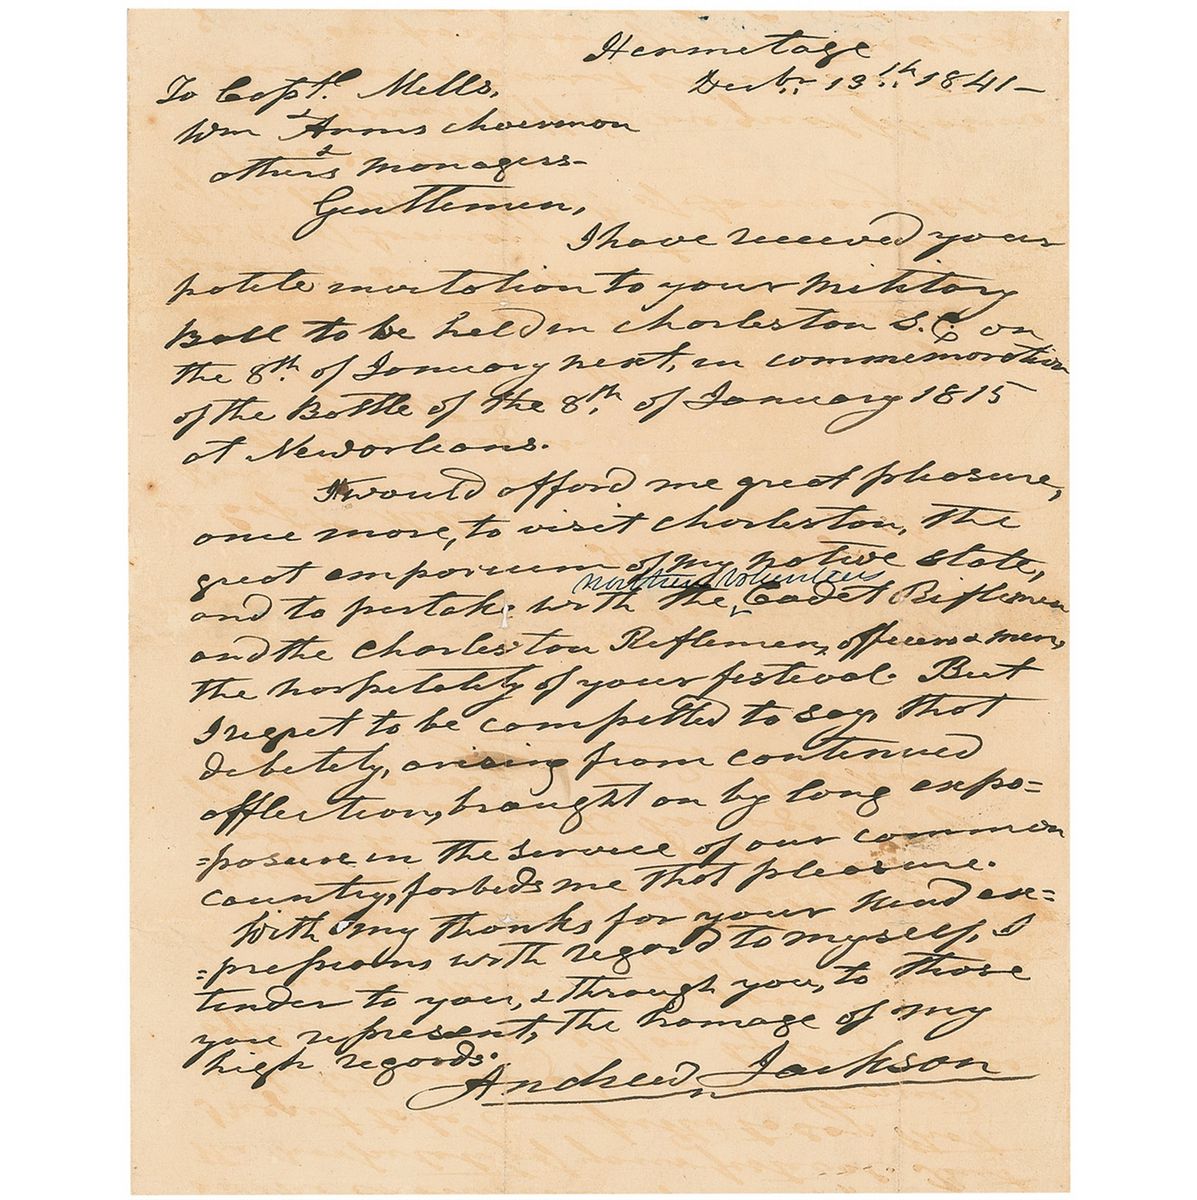 Hermitage
Decbr. 13th. 1841—
To Capt. Mills,
Wm Arms chairman
& others managers—
Gentlemen,
I have received your
polite invitation to your Military
Ball to be held in Charleston S.C. on
the 8th. of January next, in commemoration
of the Battle of the 8th. of January 1815
at Neworleans.
It would afford me great pleasure,
once more, to visit Charleston, the
great emporium of my native state,
Northern Volunteers
and to partake with the, Cadet Riflemen
and the Charleston Riflemen, officers & men,
the hospitality of your festival. But
I regret to be compelled to say, that
debility, arising from continued
affliction, brought on by long expo=
=posure in the service of our common
country, forbids me that pleasure.
With my thanks for your kind ex=
=pressions with regard to myself, I
tender to you, & through you, to those
you represent, the homage of my
high regards.
Andrew Jackson